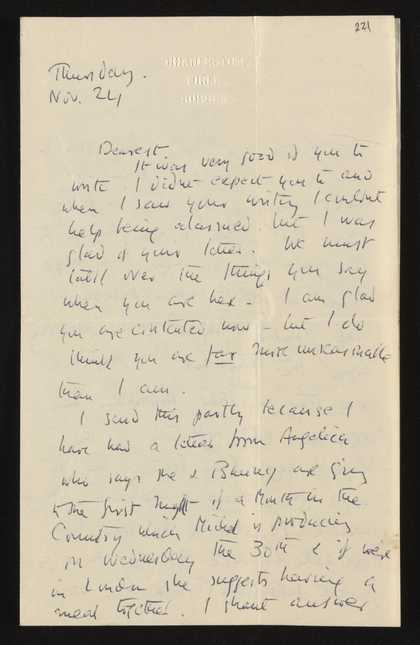 221
CHARLESTON,
FIRLE,
SUSSEX.
Thursday.
Nov. 24
Dearest
It was very good of you to
write. I didn't expect you to and
when I saw your writing I couldnt
help being alarmed. but I was
glad of your letter. We must
talk over the things you say
when you are here - I am glad
you are contented now - but I do
think you are far more unreasonable
than I am.
I send this partly because I
have had a letter from Angelica
who says she & Bunny are going
to the first night of a Month in the
Country which Michel is producing
on Wednesday the 30th & if we're
in London she suggests having a
meal together. I shant answer